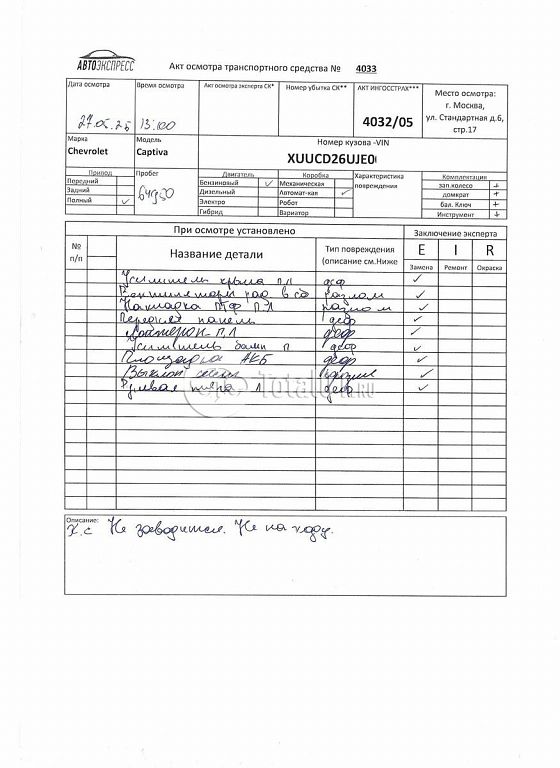 АВТОЭКСПРЕСС
Акт осмотра транспортного средства № 4033
Дата осмотра
Время осмотра
Акт осмотра эксперта СК*
Номер убытка СК**
АКТ ИНГОССТРАХ***
Место осмотра:
г. Москва,
ул. Стандартная д.6,
стр.17
13:00
4032/05
Марка
Модель
Номер кузова -VIN
Chevrolet
Captiva
XUUCD26UJE0
Привод
Пробег
Двигатель
Коробка
Характеристика
повреждения
Комплектация
Передний
Бензиновый ✓
Механическая
зап.колесо +
Задний
Дизельный
Автомат-кая ✓
домкрат +
Полный ✓
Электро
Робот
бал. Ключ +
Гибрид
Вариатор
Инструмент +
При осмотре установлено
Заключение эксперта
№
п/п
Название детали
Тип повреждения
(описание см.Ниже
E I R
Замена Ремонт Окраска
Усилитель крыла п л деф ✓
Вентиляторы рад в сб разлом ✓
Накладка ПТФ П Л разлом ✓
Передняя панель деф ✓
Лонжерон П Л деф ✓
Усилитель бамп п деф ✓
Площадка АКБ деф ✓
✓
Рулевая л деф ✓
Total01.RU
Описание:
х.с Не заводится. Не на ходу.